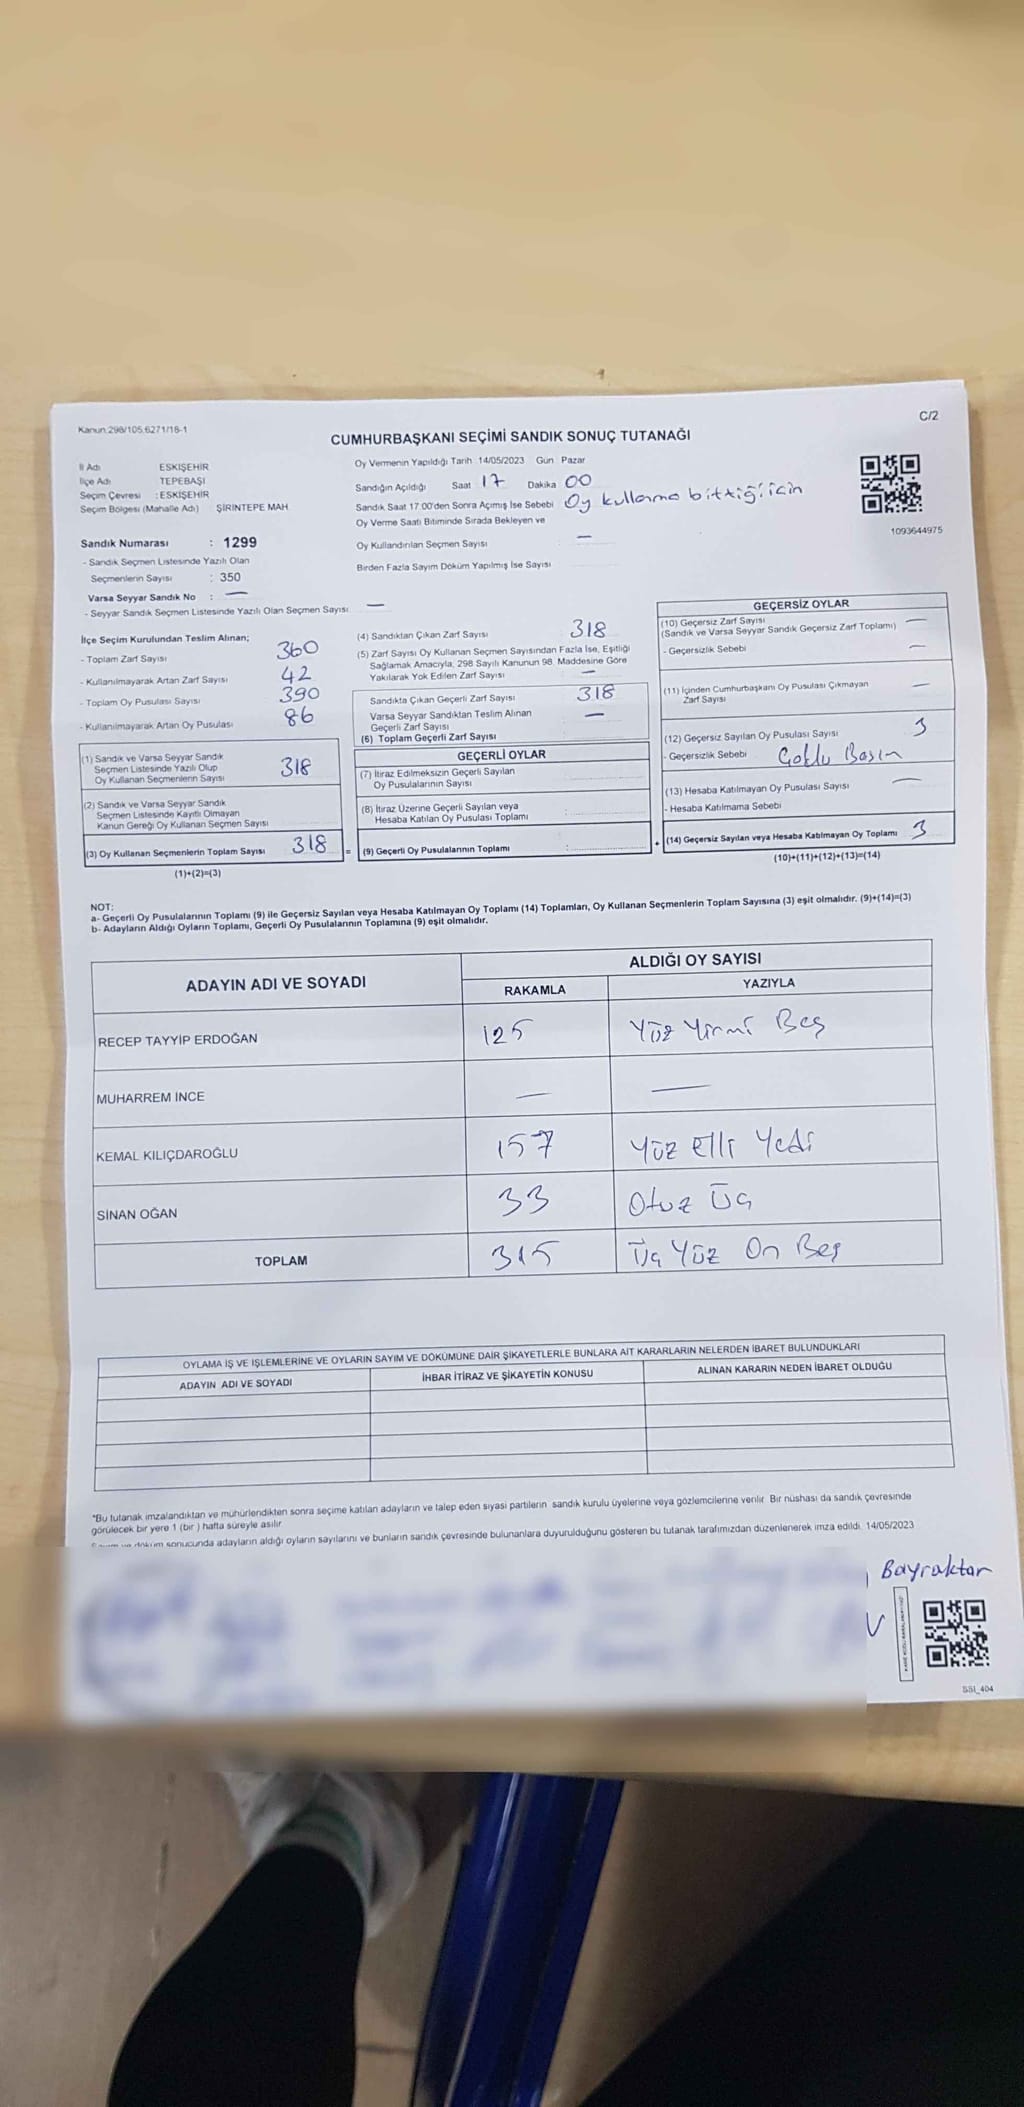 Kanun.298/105.6271/18-1
C/2
CUMHURBAŞKANI SEÇİMİ SANDIK SONUÇ TUTANAĞI
İl Adı ESKİŞEHİR
İlçe Adı TEPEBAŞI
Seçim Çevresi : ESKİŞEHİR
Seçim Bölgesi (Mahalle Adı) ŞİRİNTEPE MAH.
Sandık Numarası : 1299
- Sandık Seçmen Listesinde Yazılı Olan
Seçmenlerin Sayısı : 350
Varsa Seyyar Sandık No : —
- Seyyar Sandık Seçmen Listesinde Yazılı Olan Seçmen Sayısı: —
Oy Vermenin Yapıldığı Tarih 14/05/2023 Gün Pazar
Sandığın Açıldığı Saat 17 Dakika 00
Sandık Saat 17.00'den Sonra Açımış İse Sebebi Oy kullanma bittiği için
Oy Verme Saati Bitiminde Sırada Bekleyen ve
Oy Kullandırılan Seçmen Sayısı —
Birden Fazla Sayım Döküm Yapılmış İse Sayısı
1093644975
İlçe Seçim Kurulundan Teslim Alınan;
- Toplam Zarf Sayısı 360
- Kullanılmayarak Artan Zarf Sayısı 42
- Toplam Oy Pusulası Sayısı 390
- Kullanılmayarak Artan Oy Pusulası 86
(1) Sandık ve Varsa Seyyar Sandık
Seçmen Listesinde Yazılı Olup
Oy Kullanan Seçmenlerin Sayısı 318
(2) Sandık ve Varsa Seyyar Sandık
Seçmen Listesinde Kayıtlı Olmayan
Kanun Gereği Oy Kullanan Seçmen Sayısı
(3) Oy Kullanan Seçmenlerin Toplam Sayısı 318 =
(1)+(2)=(3)
(4) Sandıktan Çıkan Zarf Sayısı 318
(5) Zarf Sayısı Oy Kullanan Seçmen Sayısından Fazla İse, Eşitliği
Sağlamak Amacıyla, 298 Sayılı Kanunun 98. Maddesine Göre
Yakılarak Yok Edilen Zarf Sayısı —
Sandıkta Çıkan Geçerli Zarf Sayısı 318
Varsa Seyyar Sandıktan Teslim Alınan
Geçerli Zarf Sayısı —
(6) Toplam Geçerli Zarf Sayısı
GEÇERLİ OYLAR
(7) İtiraz Edilmeksizin Geçerli Sayılan
Oy Pusulalarının Sayısı :
(8) İtiraz Üzerine Geçerli Sayılan veya
Hesaba Katılan Oy Pusulası Toplamı :
(9) Geçerli Oy Pusulalarının Toplamı : +
GEÇERSİZ OYLAR
(10) Geçersiz Zarf Sayısı —
(Sandık ve Varsa Seyyar Sandık Geçersiz Zarf Toplamı)
- Geçersizlik Sebebi —
(11) İçinden Cumhurbaşkanı Oy Pusulası Çıkmayan
Zarf Sayısı —
(12) Geçersiz Sayılan Oy Pusulası Sayısı 3
- Geçersizlik Sebebi Çoklu Basım
(13) Hesaba Katılmayan Oy Pusulası Sayısı —
- Hesaba Katılmama Sebebi
(14) Geçersiz Sayılan veya Hesaba Katılmayan Oy Toplamı 3
(10)+(11)+(12)+(13)=(14)
NOT:
a- Geçerli Oy Pusulalarının Toplamı (9) ile Geçersiz Sayılan veya Hesaba Katılmayan Oy Toplamı (14) Toplamları, Oy Kullanan Seçmenlerin Toplam Sayısına (3) eşit olmalıdır. (9)+(14)=(3)
b- Adayların Aldığı Oyların Toplamı, Geçerli Oy Pusulalarının Toplamına (9) eşit olmalıdır.
ADAYIN ADI VE SOYADI ALDIĞI OY SAYISI
RAKAMLA YAZIYLA
RECEP TAYYİP ERDOĞAN 125 Yüz Yirmi Beş
MUHARREM İNCE — —
KEMAL KILIÇDAROĞLU 157 Yüz Elli Yedi
SİNAN OĞAN 33 Otuz Üç
TOPLAM 315 Üç Yüz On Beş
OYLAMA İŞ VE İŞLEMLERİNE VE OYLARIN SAYIM VE DÖKÜMÜNE DAİR ŞİKAYETLERLE BUNLARA AİT KARARLARIN NELERDEN İBARET BULUNDUKLARI
ADAYIN ADI VE SOYADI İHBAR İTİRAZ VE ŞİKAYETİN KONUSU ALINAN KARARIN NEDEN İBARET OLDUĞU
*Bu tutanak imzalandıktan ve mühürlendikten sonra seçime katılan adayların ve talep eden siyasi partilerin sandık kurulu üyelerine veya gözlemcilerine verilir. Bir nüshası da sandık çevresinde
görülecek bir yere 1 (bir) hafta süreyle asılır.
Sayım ve döküm sonucunda adayların aldığı oyların sayılarını ve bunların sandık çevresinde bulunanlara duyurulduğunu gösteren bu tutanak tarafımızdan düzenlenerek imza edildi. 14/05/2023
Bayraktar
SSI_404